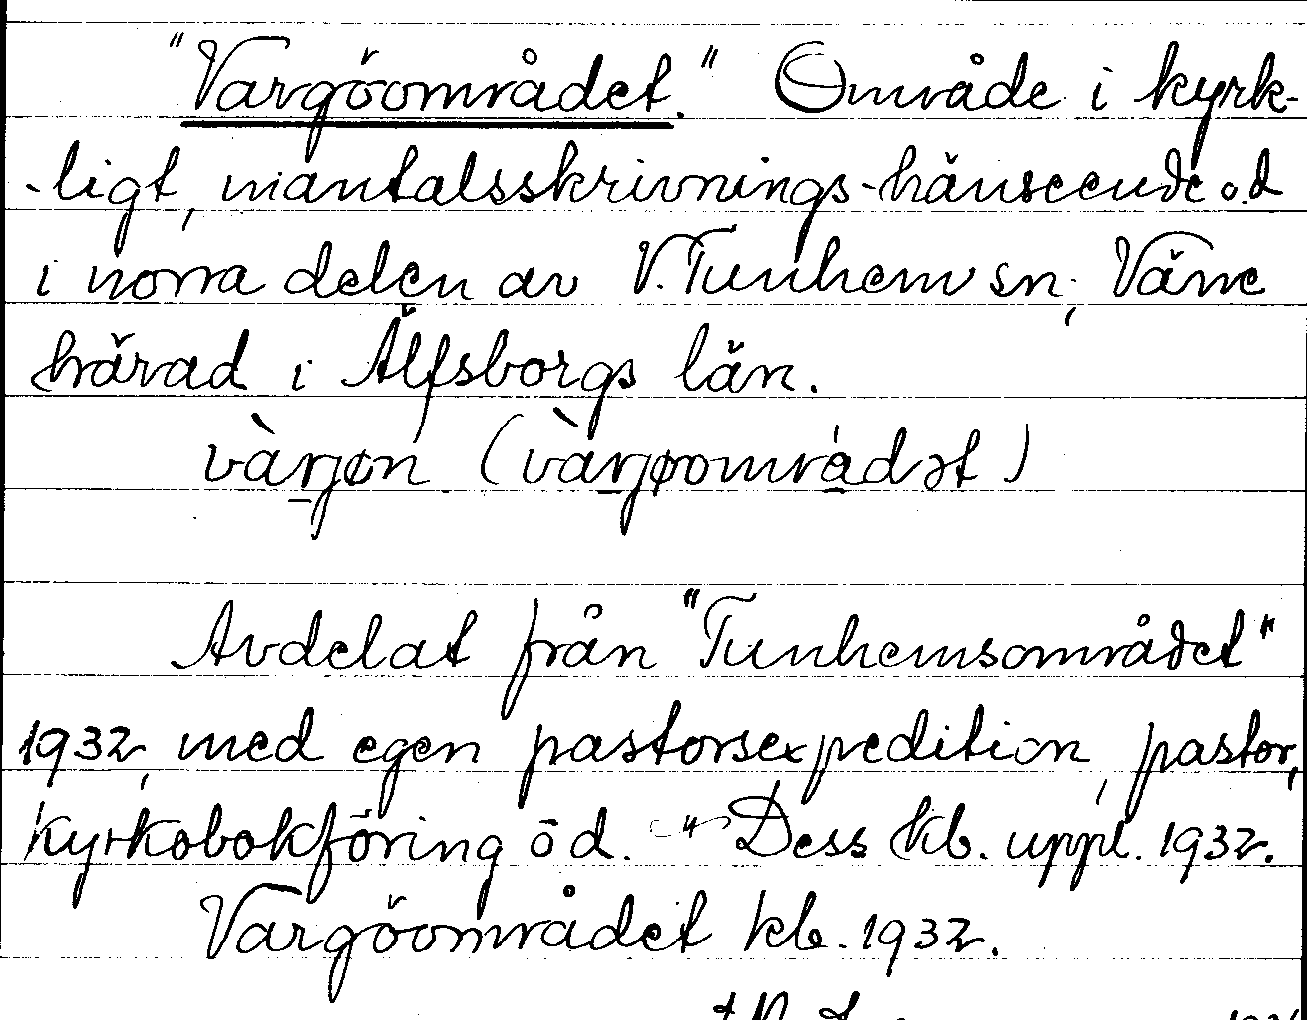 "Vargöområdet." Område i kyrk-
-ligt, mantalsskrivnings-hänseende o.d
i norra delen av V. Tunhem sn; Väne
härad i Älfsborgs län.
vàrjøn (vàrjøområdət)
Avdelat från "Tunhemsområdet"
1932, med egen pastorsexpedition, pastor,
kyrkobokföring öd. Dess kb. uppl. 1932.
Vargöområdet kb. 1932.